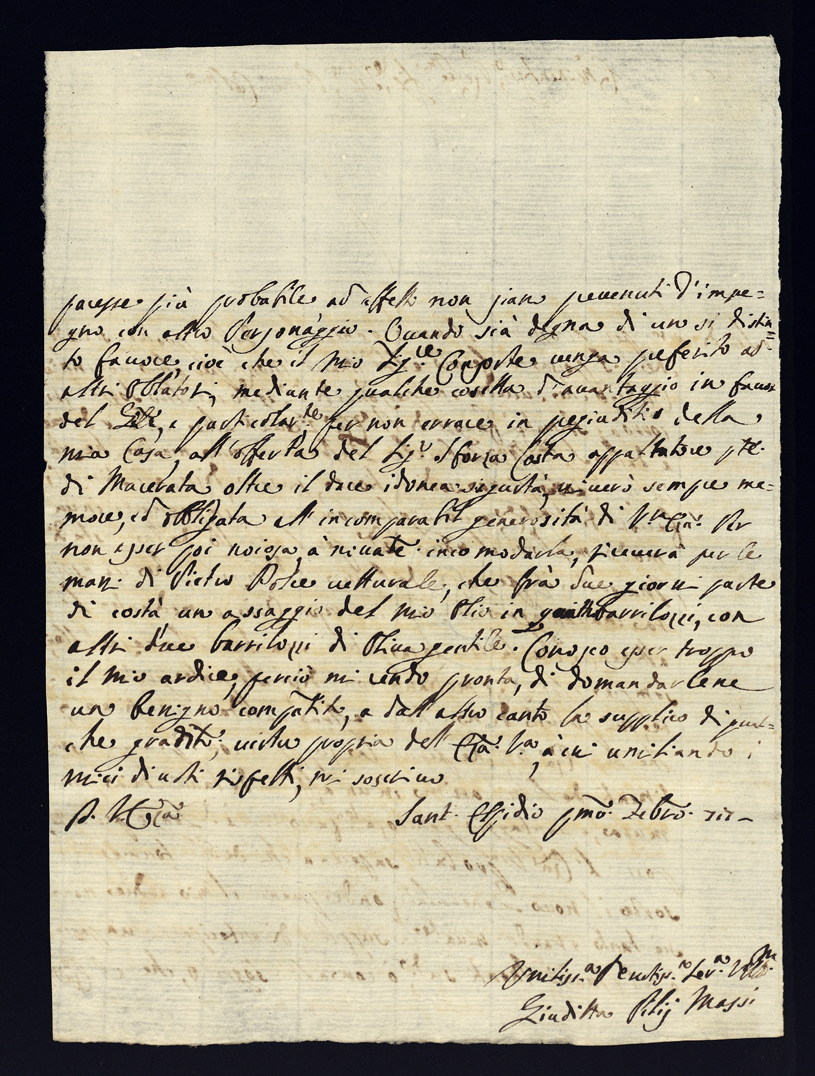 paresse più probabile ad effetto non siano prevenuti d'impe=
gno con altro Personaggio. Quando sià degna di un si distin=
to favore, cioè che il mio Sig.re Consorte venga preferito ad
altri Oblatori, mediante qualche cosetta d'avantaggio in favor
del e particolar.te per non errare in pregiuditio della
mia Casa, all'offerta del Sig.r Sforza Costa appaltatore pte.
di Macerata oltre il dare idonea sigurtà, viverò sempre me=
more, ed obbligata all'incomparabil generosità di Per
non esser poi noiosa, à incomodarla, riceverà per le
mani di Pietro vetturale, che frà due giorni parte
di costà un assaggio del mio Olio in barrilozzi, con
altri due barrilozzi di Oliva gentile. Conosco esser troppo
il mio ardire, perciò mi rendo pronta, di domandarlene
un benigno compatito, e dall'altro canto la supplico di qual=
che gradito, virtù propria dell' à cui umiliando i
miei divoti rispetti, mi soscrivo
Sant' Elpidio pmo. Febro.
Umiliss.a Devotiss.a Ser.a
Giuditta Pilij Massi